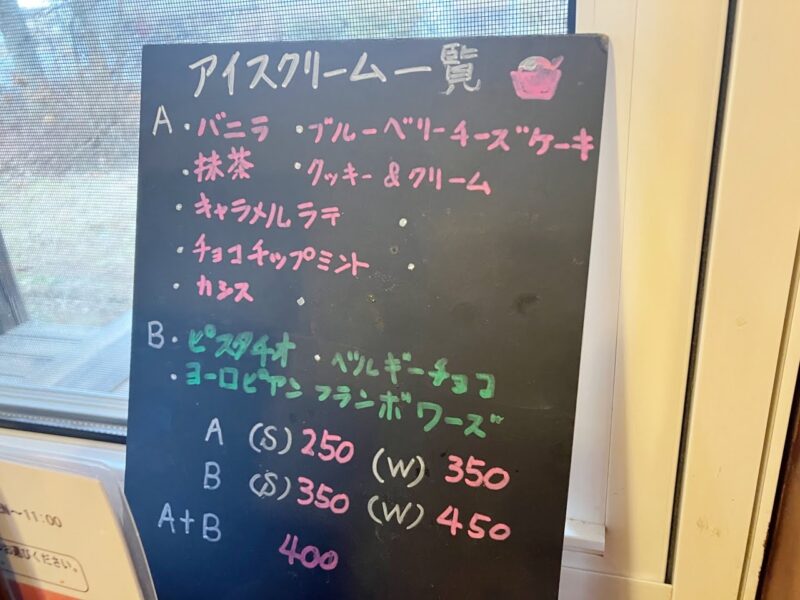 アイスクリーム一覧
A ・バニラ ・ブルーベリーチーズケーキ
・抹茶 ・クッキー&クリーム
・キャラメルラテ ・
・チョコチップミント ・
・カシス ・
B・ピスタチオ ・ベルギーチョコ
・ヨーロピアンフランボワーズ
A (S) 250 (W) 350
B (S) 350 (W) 450
A+B 400
〜11:00
ください。